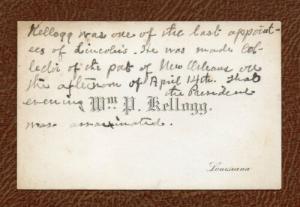 Kellogg was one of the last appoint-
ees of Lincoln's. He was made Col-
lector of the port of New Orleans on
the afternoon of April 14th. That
evening the President
Wm P. Kellogg.
was assassinated.
Louisiana